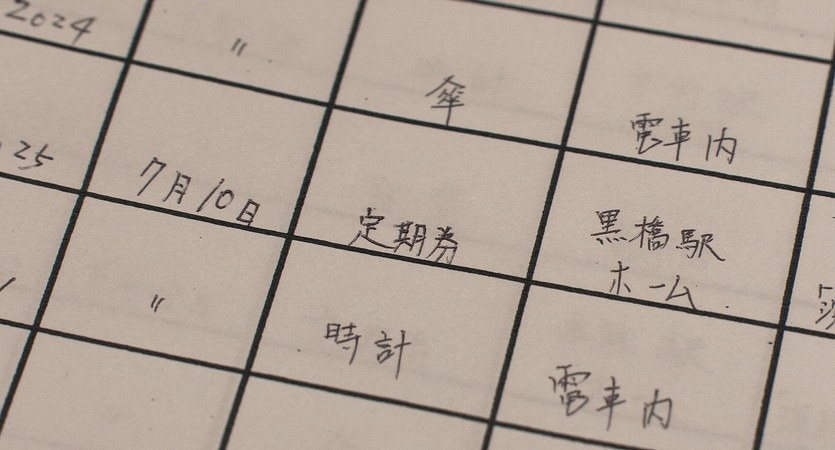 2024
〃
傘
電車内
25
7月10日
定期券
黒橋駅
ホーム
〃
時計
電車内